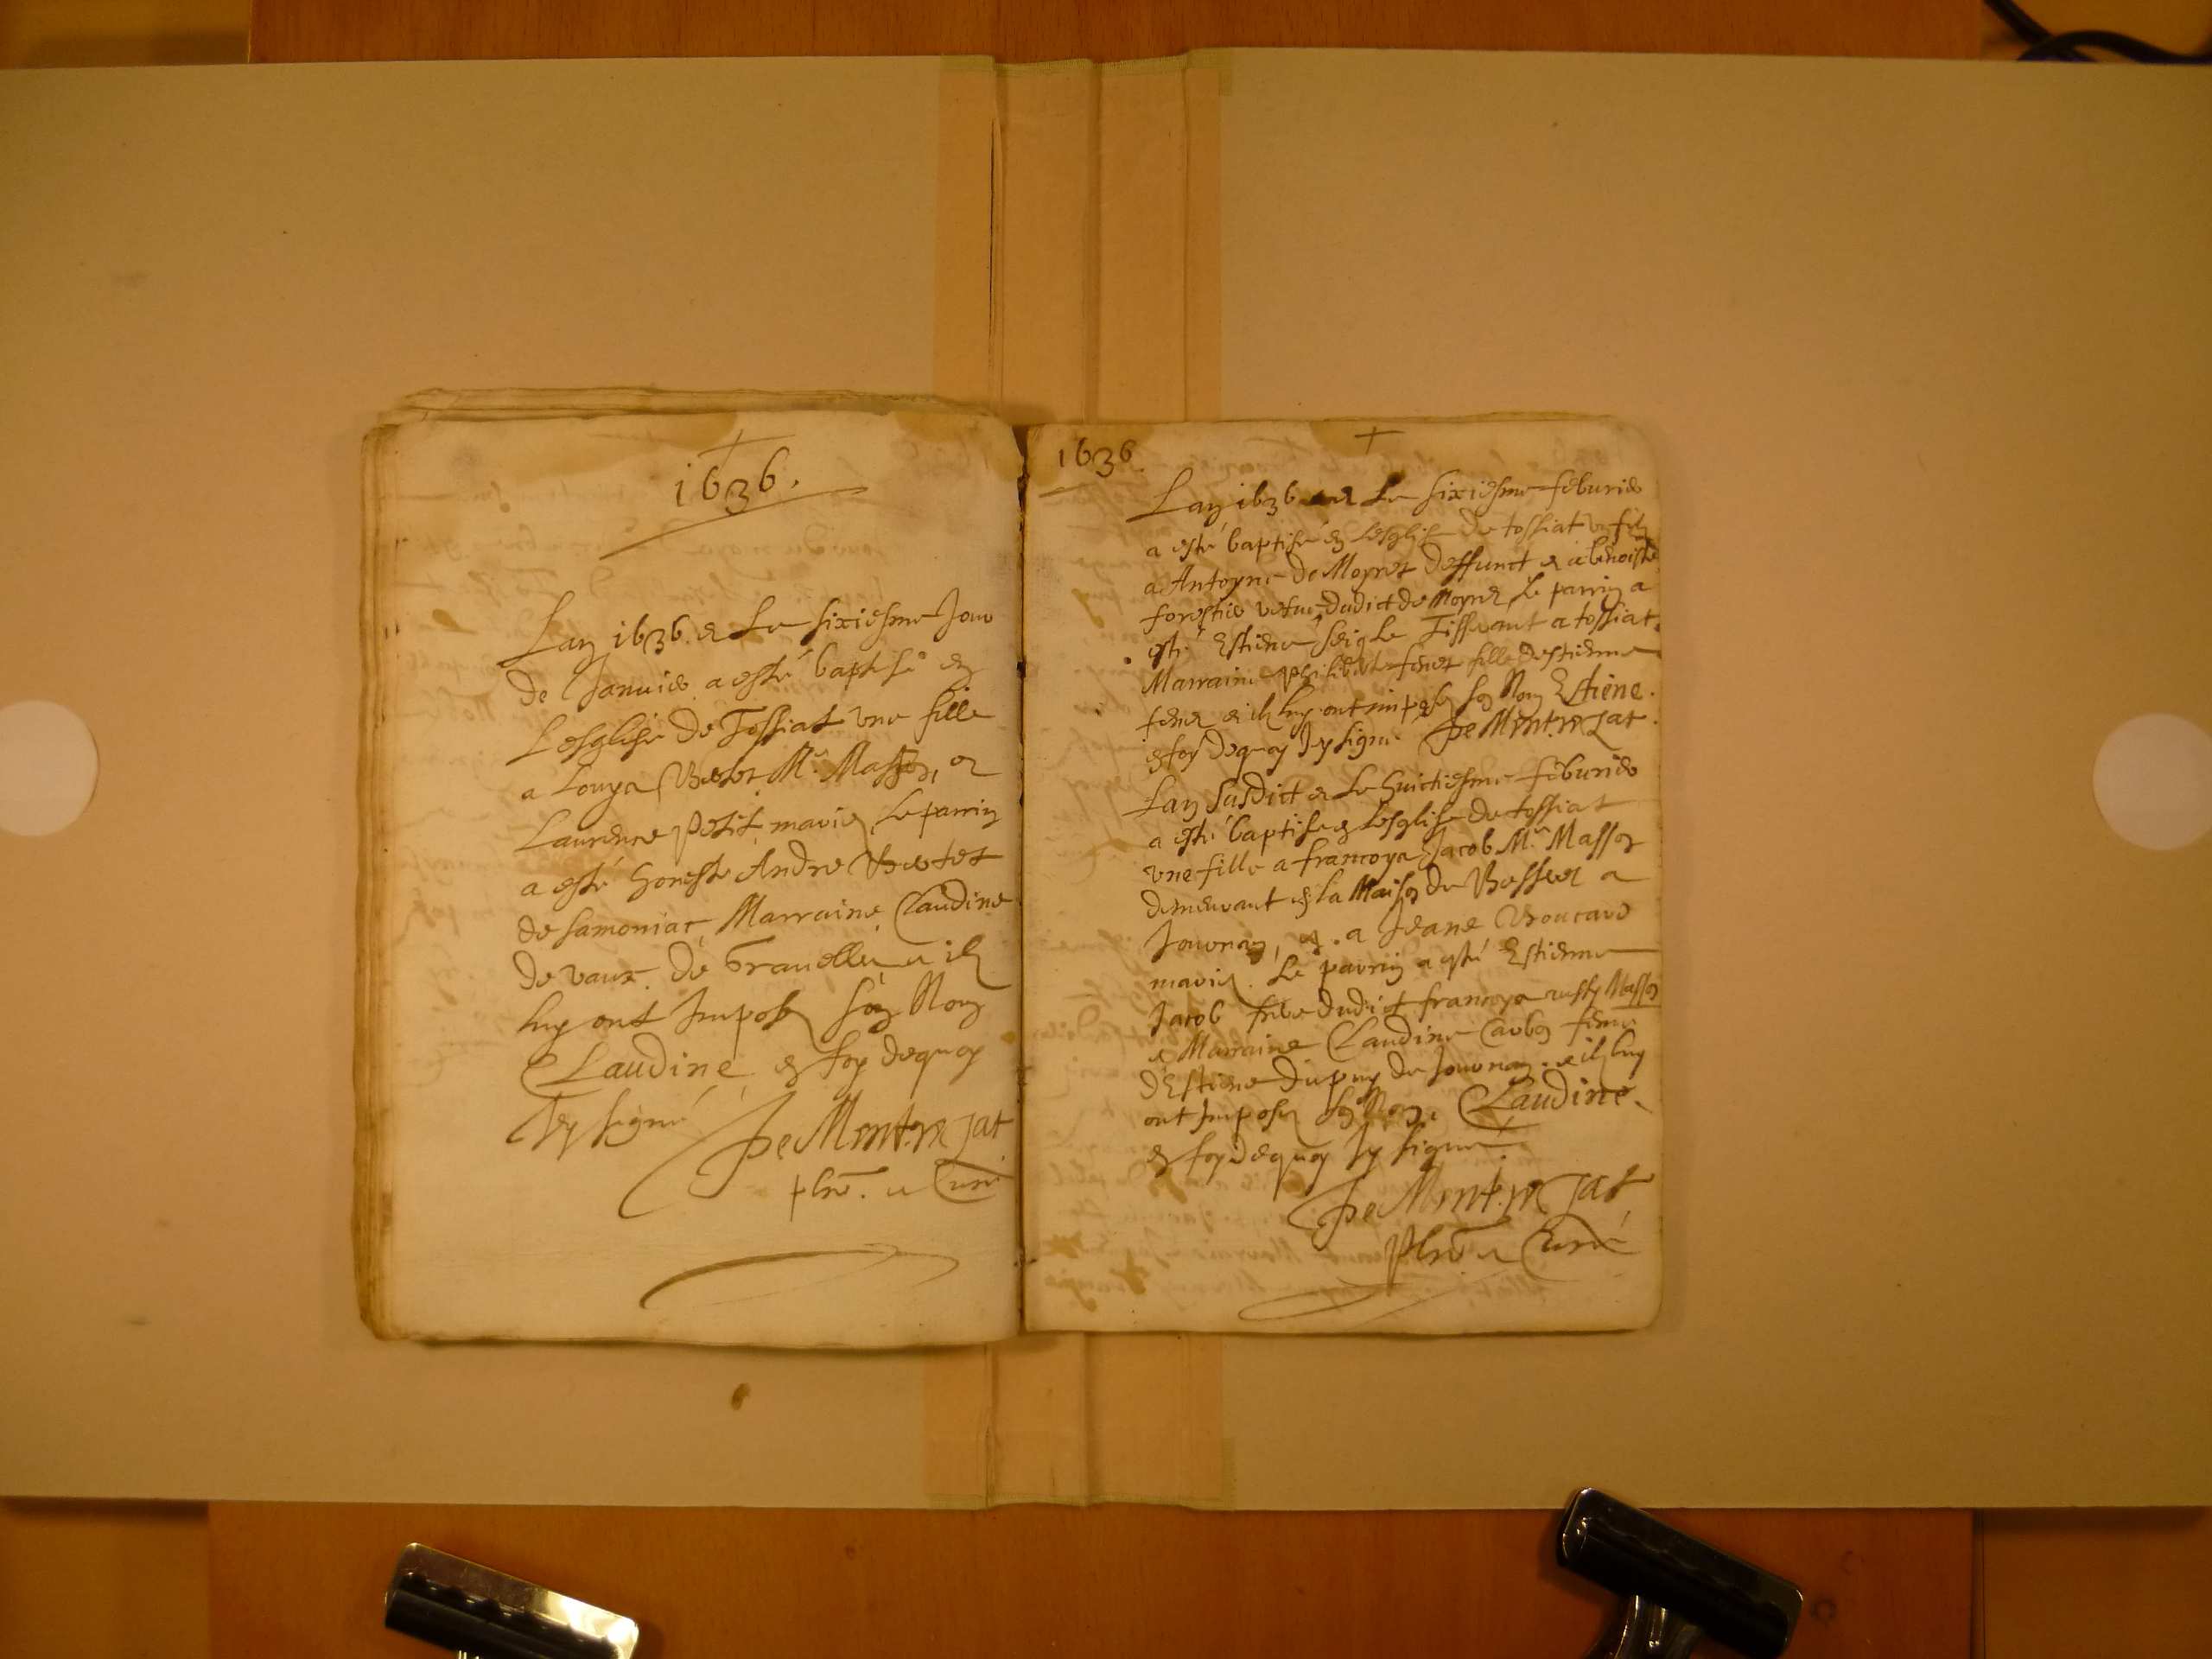 1636.
Lan 1636. et Le sixiesme Jour
de Januier a esté baptisé en
Lesglise de Tossiat vne fille
a Louys M.e Masson, et
Laurence Petit mariés, Le parrin
a esté honeste Andre
de Samoniat, Marraine Claudine
de vaux de Grauelle et ilz
luy ont Imposé son Nom
Claudine, en foy dequoy
Jey signé De Montmerjat
pbre. et Curé
1636.
Lan 1636 et Le sixiesme feburier
a esté baptisé en Lesglise de tossiat vn filz
a Antoyne de Moyret deffunct et a benoiste
forestier vefue dudict de Moyret Le parrin a
esté Estiene Tisserant a tossiat.
Marraine philiberte feuet fille destienne
feuet et ilz luy ont imposé son Nom Estiene.
en foy dequoy Jey signé De Montmerjat.
Lan susdict et Le huictiesme feburier
a esté baptisé en Lesglise de tossiat
vne fille a francoys Jacob M.e Masson
demeurant en la Maison de a
Journan, et a Jeane
mariés. Le parrin a esté Estienne
Jacob frere dudict francoys aussy Masson
et Marraine Claudine feme
d'Estiene Dupuy de Journan. et ilz luy
ont Imposé son Nom Claudine.
en foy dequoy Jey signé.
De Montmerjat
Pbre et Curé